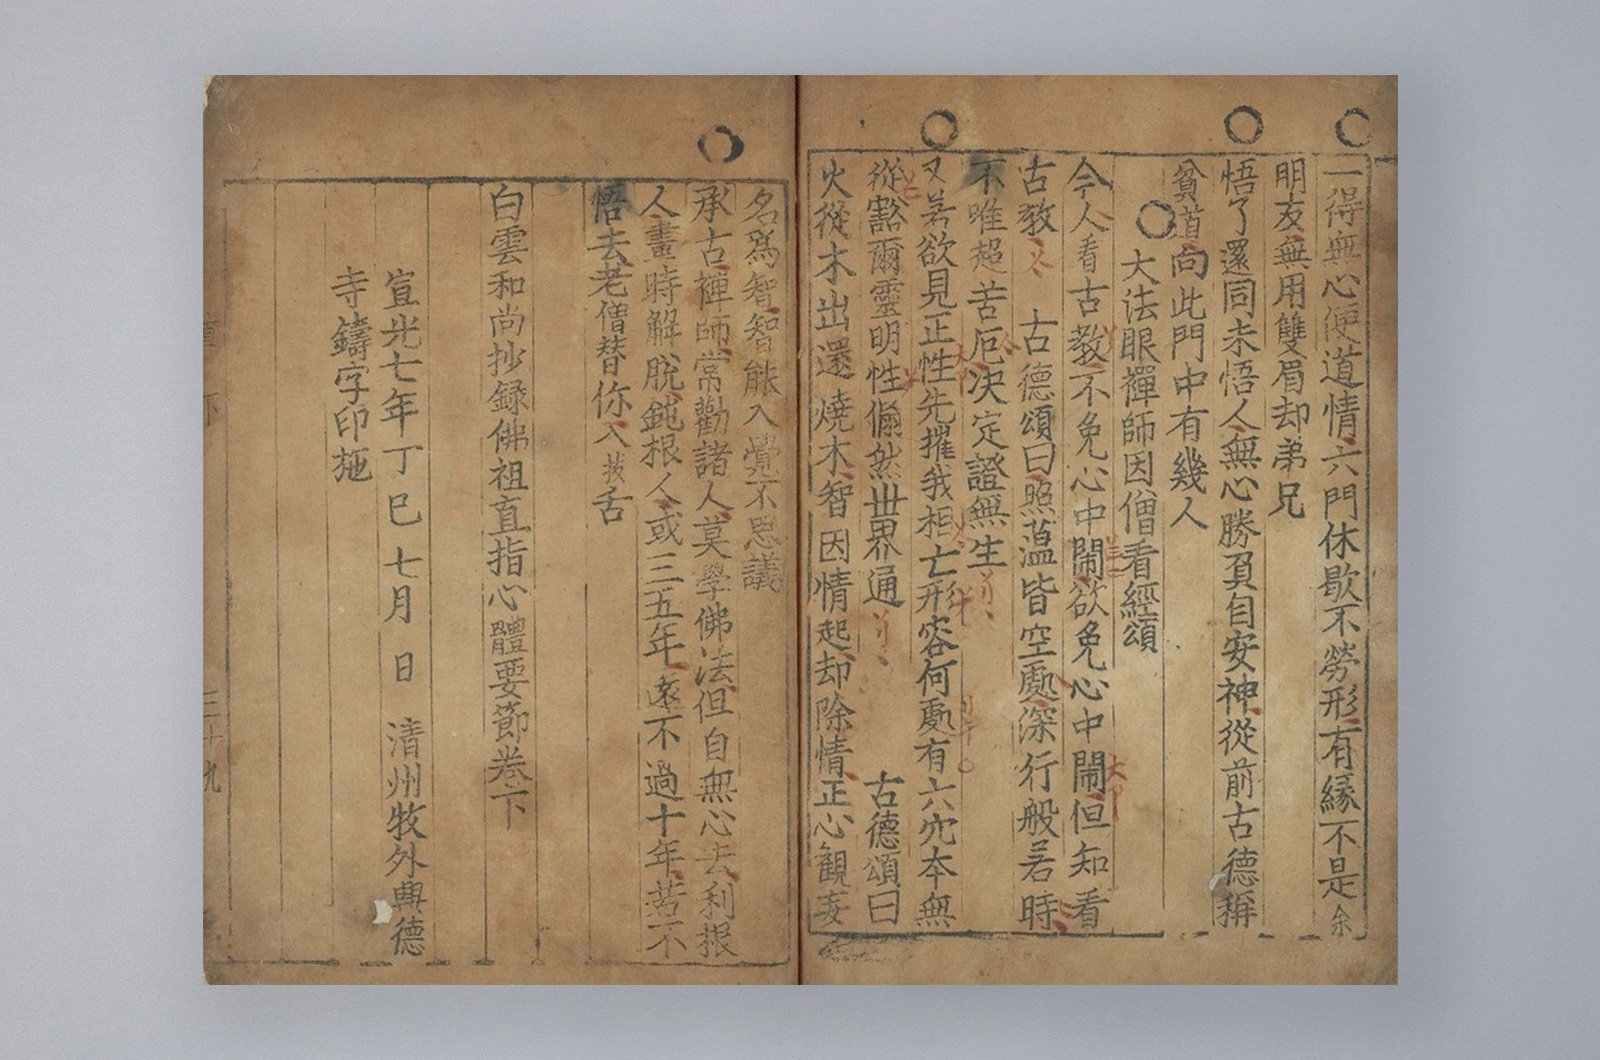 一得無心便道情六門休歇不勞形有緣不是余
明友無用雙眉却弟兄
悟了還同未悟人無心勝負自安神從前古德稱
貧道向此門中有幾人
大法眼禪師因僧看經頌
今人看古教不免心中鬧欲免心中鬧但知看
古教 古德頌曰照蕰皆空處深行般若時
不唯超苦厄決定證無生
又若欲見正性先摧我相亡形容何處有六穴本無
從豁爾靈明性翛然世界通 古德頌曰
火從木出還燒木智因情起却除情正心觀妄
名爲智智能入覺不思議
承古禪師常勸諸人莫學佛法但自無心去利根
人晝時解脫鈍根人或三五年遠不過十年若不
悟去老僧替你入拔舌
白雲和尚抄録佛祖直指心體要節卷下
宣光七年丁巳七月 日 清州牧外興德
寺鑄字印施
三十九